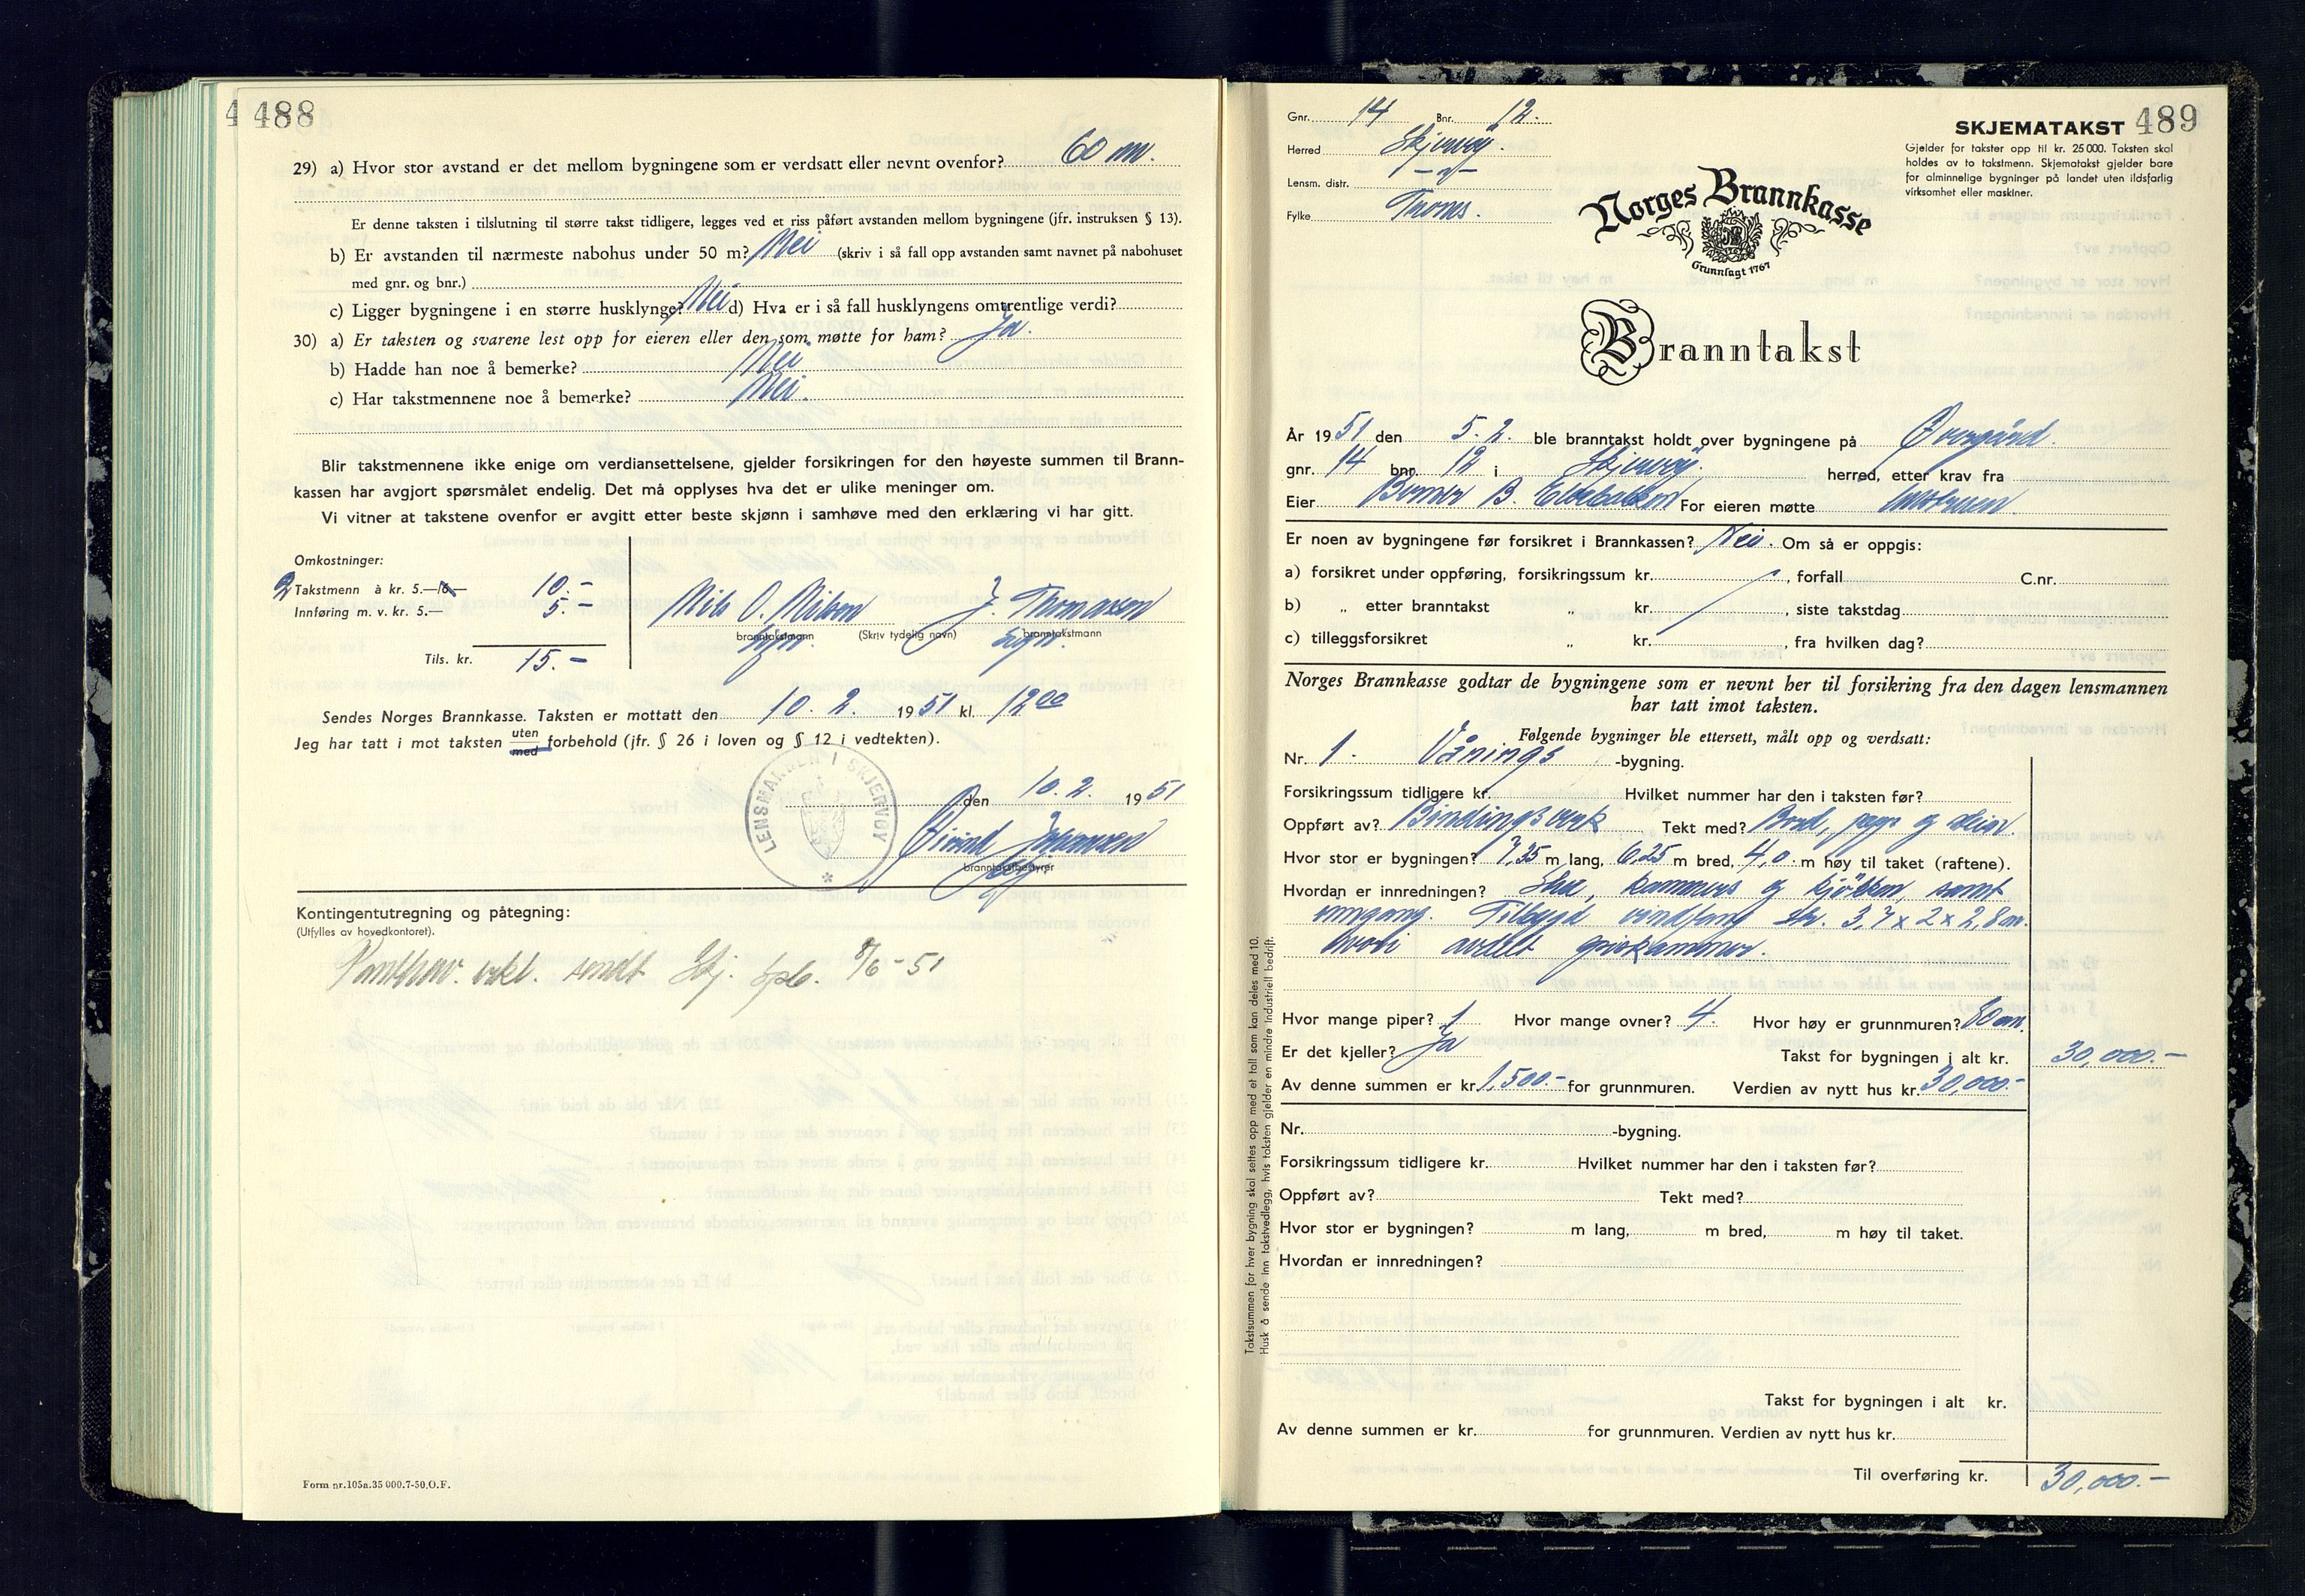 4 488
29) a) Hvor stor avstand er det mellom bygningene som er verdsatt eller nevnt ovenfor? 60 m.
Er denne taksten i tilslutning til større takst tidligere, legges ved et riss påført avstanden mellom bygningene (jfr. instruksen § 13).
b) Er avstanden til nærmeste nabohus under 50 m? Nei (skriv i så fall opp avstanden samt navnet på nabohuset
med gnr. og bnr.)
c) Ligger bygningene i en større husklynge? Nei d) Hva er i så fall husklyngens omtrentlige verdi?
30) a) Er taksten og svarene lest opp for eieren eller den som møtte for ham? Ja.
b) Hadde han noe å bemerke? Nei
c) Har takstmennene noe å bemerke? Nei.
Blir takstmennene ikke enige om verdiansettelsene, gjelder forsikringen for den høyeste summen til Brann-
kassen har avgjort spørsmålet endelig. Det må opplyses hva det er ulike meninger om.
Vi vitner at takstene ovenfor er avgitt etter beste skjønn i samhøve med den erklæring vi har gitt.
Omkostninger:
2 Takstmenn à kr. 5.— 10.-
Innføring m. v. kr. 5.— 5.-
Nils O. Nilsen J. Thomassen
branntakstmann (Skriv tydelig navn) branntakstmann
sign. sign.
Tils. kr. 15.-
Sendes Norges Brannkasse. Taksten er mottatt den 10. 2. 1951 kl. 12 00
Jeg har tatt i mot taksten uten med forbehold (jfr. § 26 i loven og § 12 i vedtekten).
LENSMANNEN I SKJERVØY
den 10. 2. 1951
Øivind Johansen
branntakstbestyrer
Kontingentutregning og påtegning:
(Utfylles av hovedkontoret).
Panthav. erkl. sendt Skj. spb. 8/6-51
Form nr.105a.35 000.7-50.O.F.
Gnr. 14 Bnr. 12.
Herred Skjervøy.
Lensm. distr. -"-
Fylke Troms.
SKJEMATAKST 489
Gjelder for takster opp til kr. 25 000. Taksten skal
holdes av to takstmenn. Skjematakst gjelder bare
for alminnelige bygninger på landet uten ildsfarlig
virksomhet eller maskiner.
Norges Brannkasse
Grunnlagt 1767
Branntakst
År 1951 den 5. 2. ble branntakst holdt over bygningene på Övergård.
gnr. 14 bnr. 12 i Skjervøy. herred, etter krav fra
Eier B. For eieren møtte
Er noen av bygningene før forsikret i Brannkassen? Nei. Om så er oppgis:
a) forsikret under oppføring, forsikringssum kr. , forfall C.nr.
b) „ etter branntakst „ kr. , siste takstdag
c) tilleggsforsikret „ kr. , fra hvilken dag?
Norges Brannkasse godtar de bygningene som er nevnt her til forsikring fra den dagen lensmannen
har tatt imot taksten.
Følgende bygninger ble ettersett, målt opp og verdsatt:
Nr. 1. Vånings -bygning.
Forsikringssum tidligere kr. Hvilket nummer har den i taksten før?
Oppført av? Bindingsverk Tekt med? Bord, papp og skifer.
Hvor stor er bygningen? 7,35 m lang, 6,25 m bred, 4,0. m høy til taket (raftene).
Hvordan er innredningen? Stue, kammers og kjökken, samt
inngang. Tilbygd vindfang str. 3,7 x 2 x 2,8 m.
hvori avdelt spiskammer.
Hvor mange piper? 1 Hvor mange ovner? 4. Hvor høy er grunnmuren? 80 cm.
Er det kjeller? Ja Takst for bygningen i alt kr. 30,000.-
Av denne summen er kr. 1,500.- for grunnmuren. Verdien av nytt hus kr. 30,000.-
Nr. -bygning.
Forsikringssum tidligere kr. Hvilket nummer har den i taksten før?
Oppført av? Tekt med?
Hvor stor er bygningen? m lang, m bred, m høy til taket.
Hvordan er innredningen?
Takst for bygningen i alt kr.
Av denne summen er kr. for grunnmuren. Verdien av nytt hus kr.
Til overføring kr. 30,000.-
Takstsummen for hver bygning skal settes opp med et tall som kan deles med 10.
Husk å sende inn takstvedlegg, hvis taksten gjelder en mindre industriell bedrift.